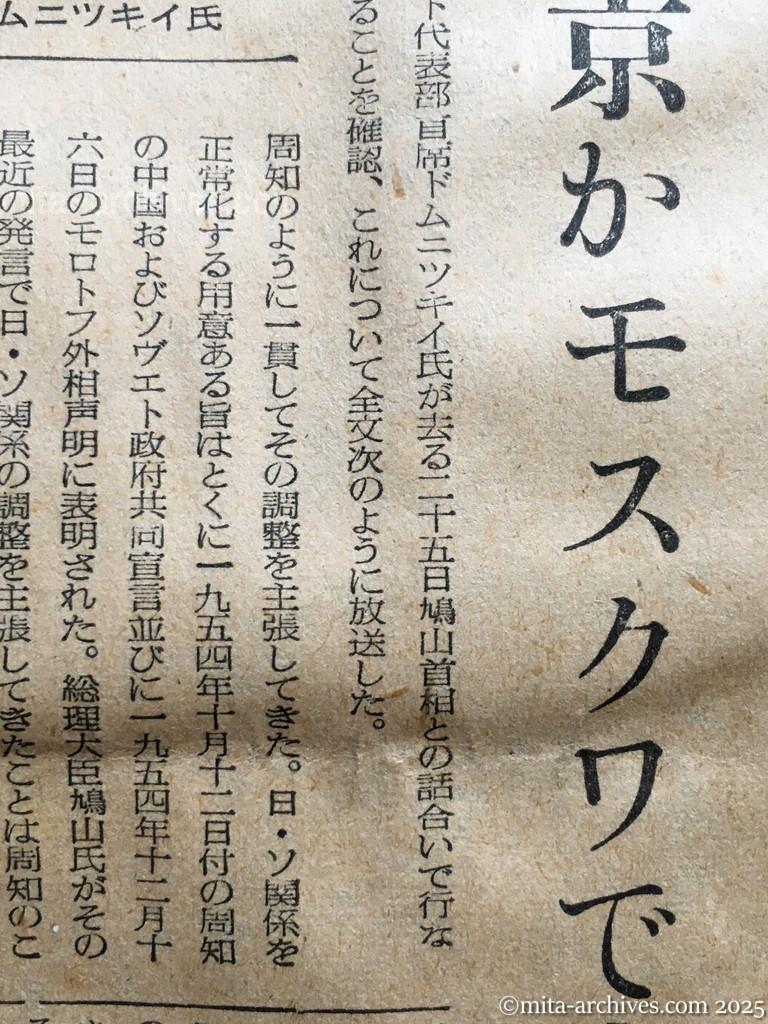 京かモスクワで
ト代表部首席ドムニツキイ氏が去る二十五日鳩山首相との話合いで行な
ることを確認、これについて全文次のように放送した。
ムニツキイ氏
周知のように一貫してその調整を主張してきた。日・ソ関係を
正常化する用意ある旨はとくに一九五四年十月十二日付の周知
の中国およびソヴエト政府共同宣言並びに一九五四年十二月十
六日のモロトフ外相声明に表明された。総理大臣鳩山氏がその
最近の発言で日・ソ関係の調整を主張してきたことは周知のこ
©mita-archives.com 2025